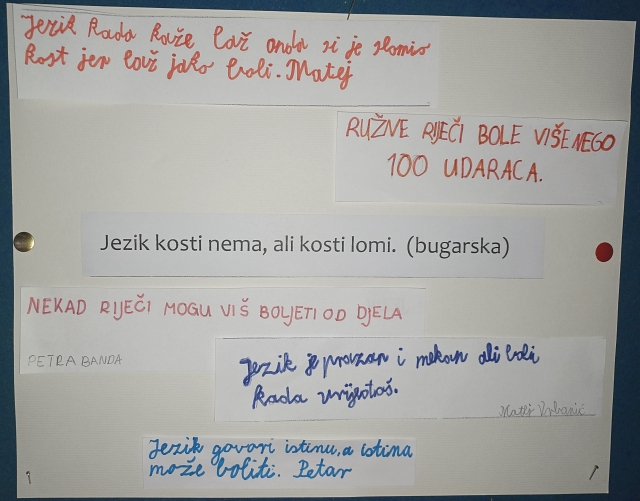 Jezik kada kaže laž onda si je slomio
kost jer laž jako boli. Matej
RUŽNE RIJEČI BOLE VIŠE NEGO
100 UDARACA.
Jezik kosti nema, ali kosti lomi. (bugarska)
NEKAD RIJEČI MOGU VIŠ BOLJETI OD DJELA
PETRA BANDA
Jezik je prazan i mekan ali boli
kada vrijeđaš.
Matej Vrbanić
Jezik govori istinu, a istina
može boliti. Petar